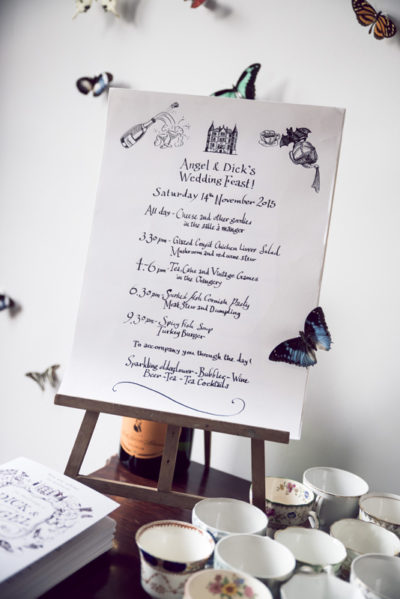 Angel & Dick's
Wedding Feast!
Saturday 14th November 2015
All day - Cheese and other goodies
in the salle à manger
3.30pm - Glazed Confit Chicken Liver Salad,
Mushroom and red wine stew
4-6pm - Tea, Cake and Vintage Games
in the Orangery
6.30pm - Smoked fish Cornish Pasty
Meat Stew and Dumpling
9.30pm - Spicy Fish Soup
Turkey Burger
To accompany you through the day!
Sparkling elderflower - Bubbles - Wine
Beer - Tea - Tea Cocktails
DICK &